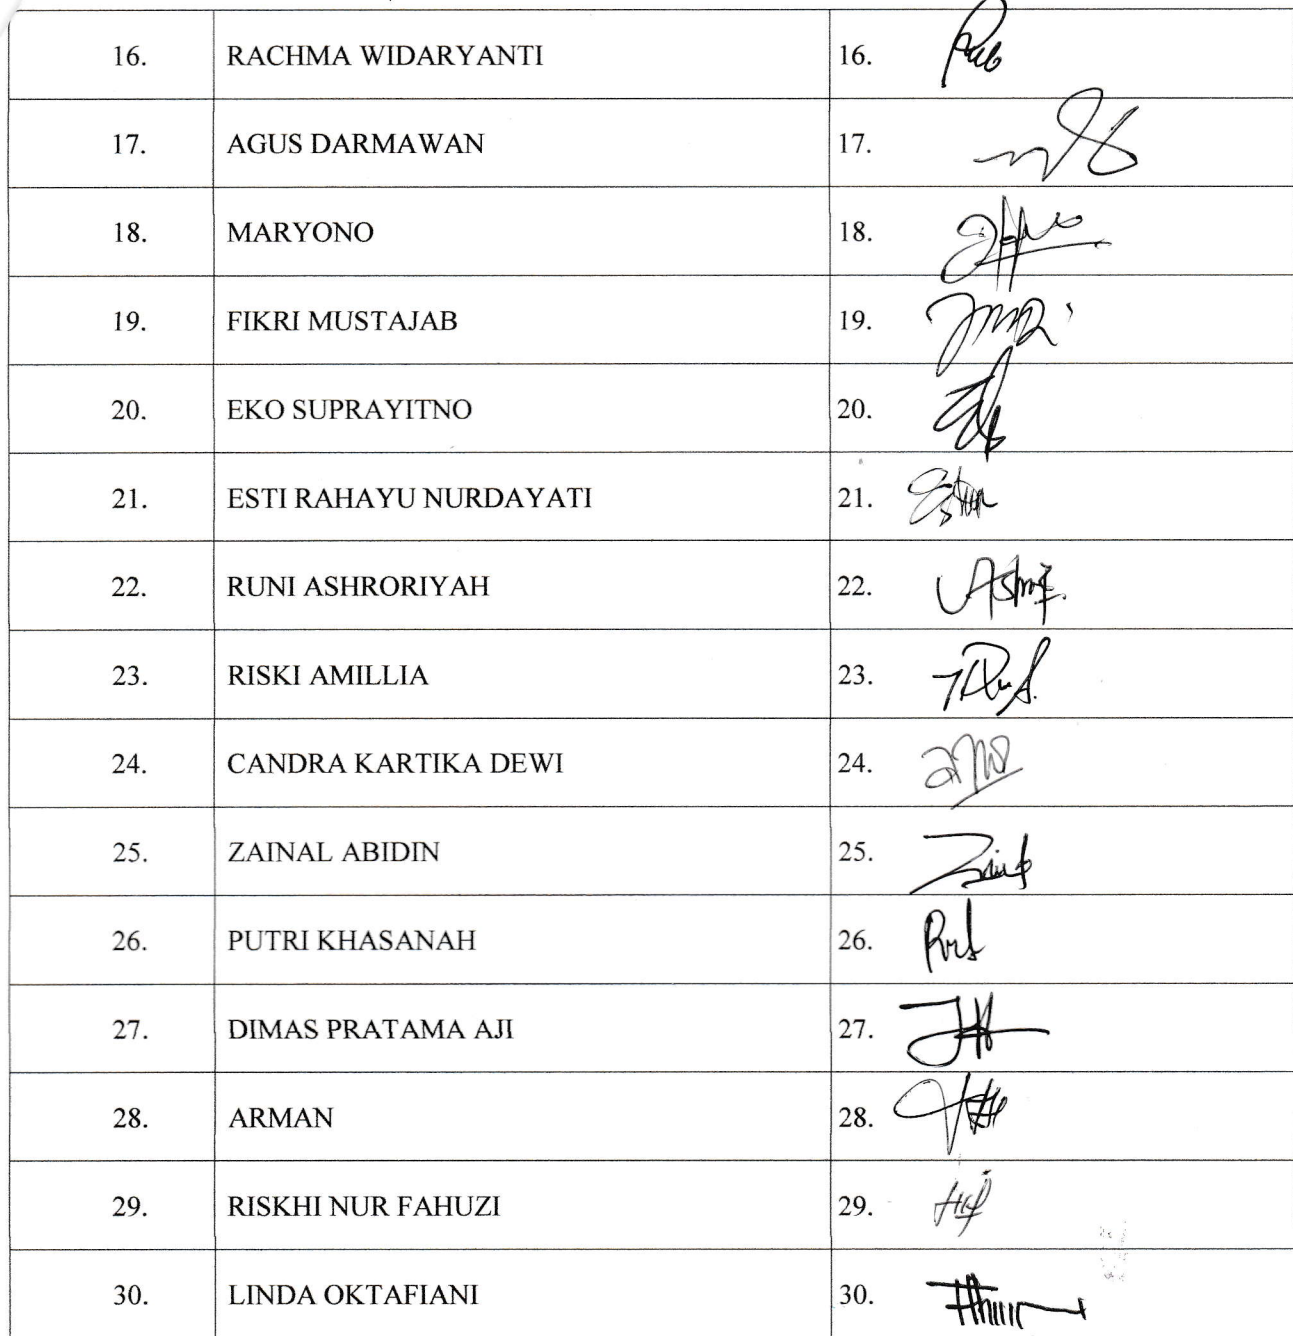 16. RACHMA WIDARYANTI 16.
17. AGUS DARMAWAN 17.
18. MARYONO 18.
19. FIKRI MUSTAJAB 19.
20. EKO SUPRAYITNO 20.
21. ESTI RAHAYU NURDAYATI 21.
22. RUNI ASHRORIYAH 22.
23. RISKI AMILLIA 23.
24. CANDRA KARTIKA DEWI 24.
25. ZAINAL ABIDIN 25.
26. PUTRI KHASANAH 26.
27. DIMAS PRATAMA AJI 27.
28. ARMAN 28.
29. RISKHI NUR FAHUZI 29.
30. LINDA OKTAFIANI 30.